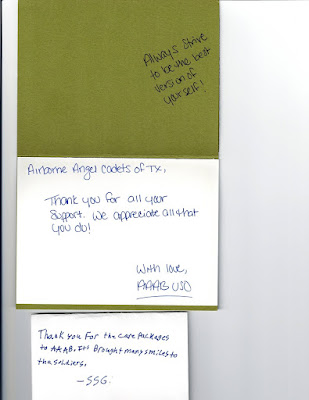 Always strive
to be the best
version of
yourself!
Airborne Angel Cadets of TX,
Thank you for all your
support. We appreciate all that
you do!
With love,
AAAB USO
Thank you for the care packages
to AAAB. It brought many smiles to
the soldiers.
-SSG